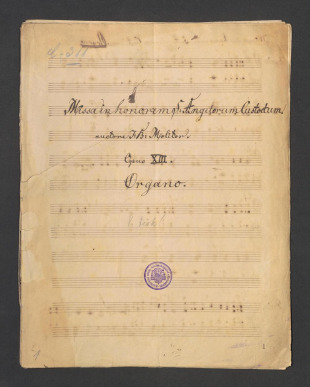 Missa in honorem S. Angelorum Custodum,
auctore J. B. Molitor.
Opus XIII.
Organo.